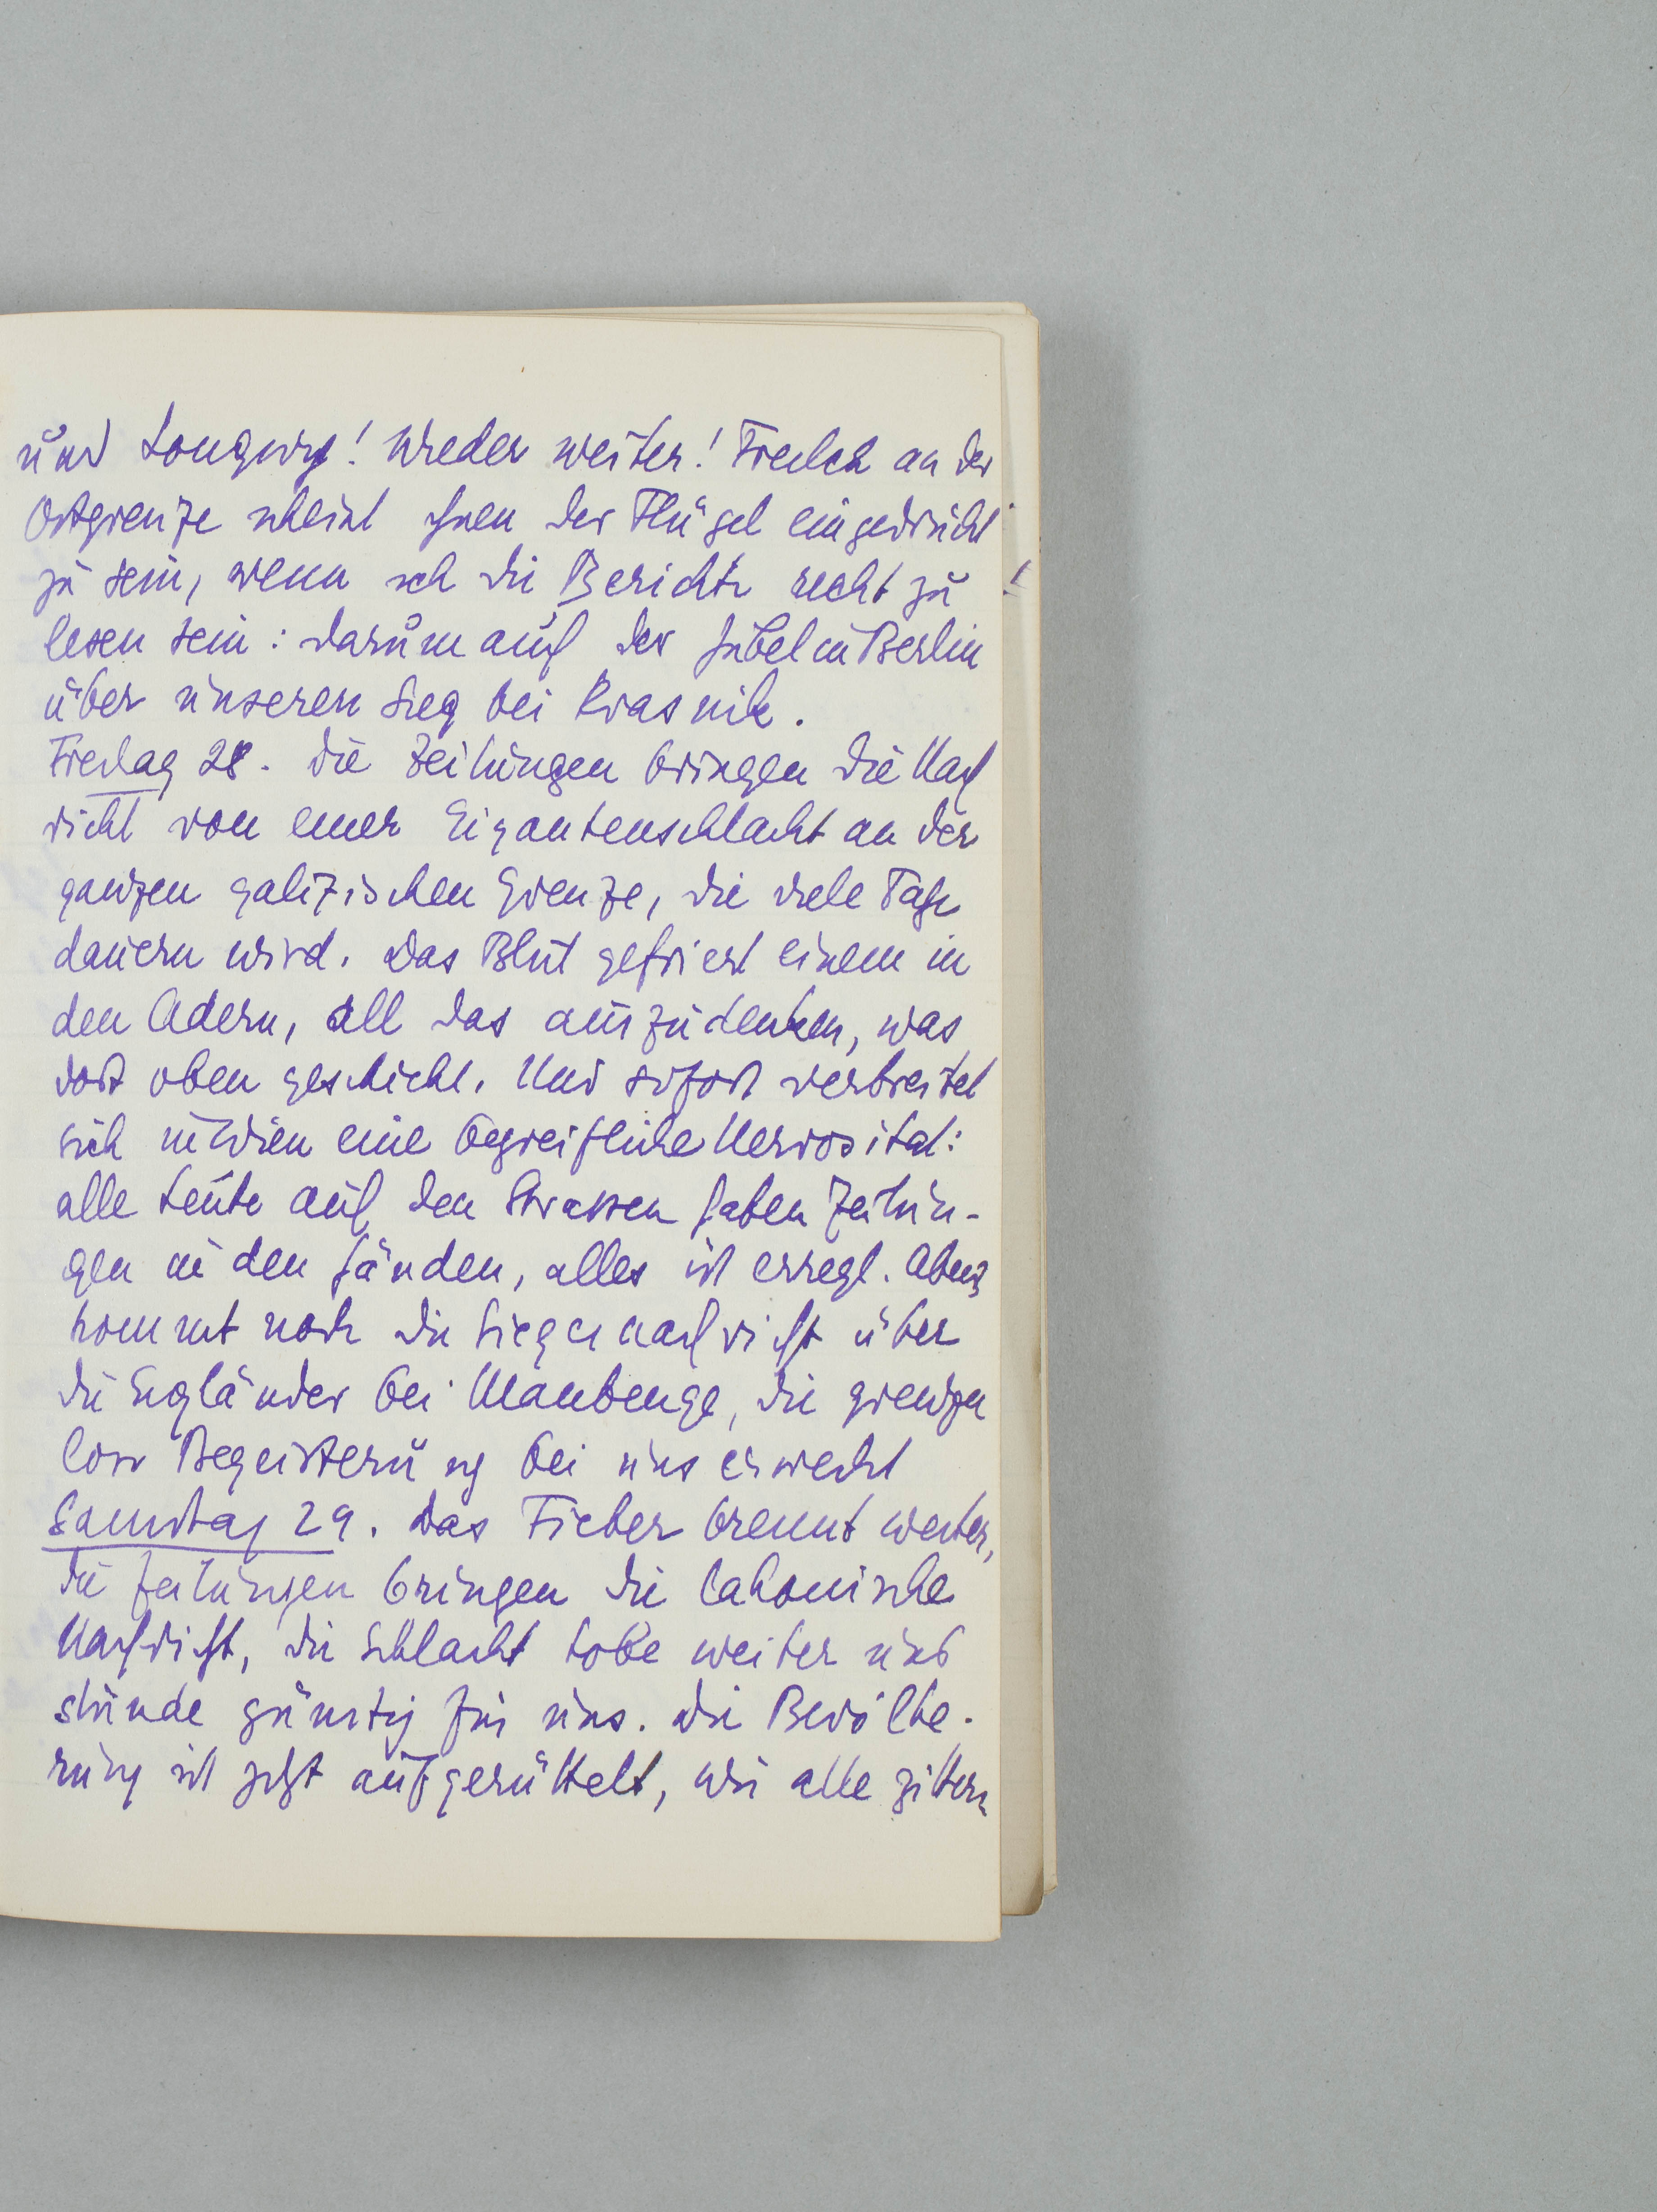 und Longwy! Wieder weiter! Freilich an der
Ostgrenze scheint ihnen der Flügel eingedrückt
zu sein, wenn ich die Berichte recht zu
lesen sein: darum auch der Jubel in Berlin
über unseren Sieg bei Krasnik.
Freitag 28. Die Zeitungen bringen die Nach
richt von einer Gigantenschlacht an der
ganzen galizischen Grenze, die viele Tage
dauern wird. Das Blut gefriert einem in
den Adern, all das auszudenken, was
dort oben geschieht. Und sofort verbreitet
sich in Wien eine begreifliche Nervosität:
alle Leute auf den Strassen haben Zeitun-
gen in den Händen, alles ist erregt. Abends
kommt noch die Siegesnachricht über
die Engländer bei Maubeuge, die grenzen
lose Begeisterung bei uns erweckt
Samstag 29. Das Fieber brennt weiter,
die Zeitungen bringen die lakonische
Nachricht, die Schlacht tobe weiter und
stünde günstig für uns. Die Bevölke-
rung ist jetzt aufgerüttelt, wir alle zittern